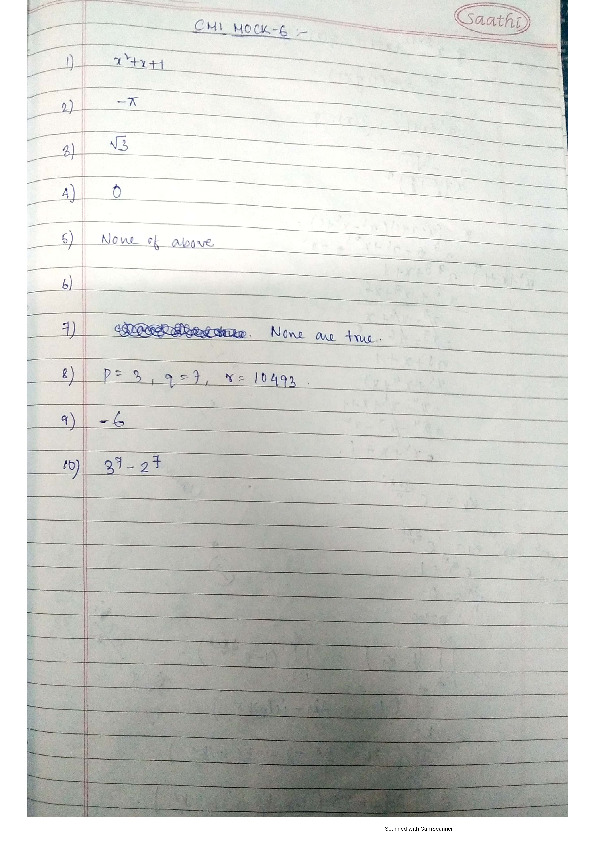 saathi
CMI MOCK-6 :-
1) x²+x+1
2) -π
3) √3
4) 0
5) None of above
6)
7) None are true.
8) p = 3, q = 7, r = 10493.
9) -6
10) 3⁷ - 2⁷
Scanned with CamScanner